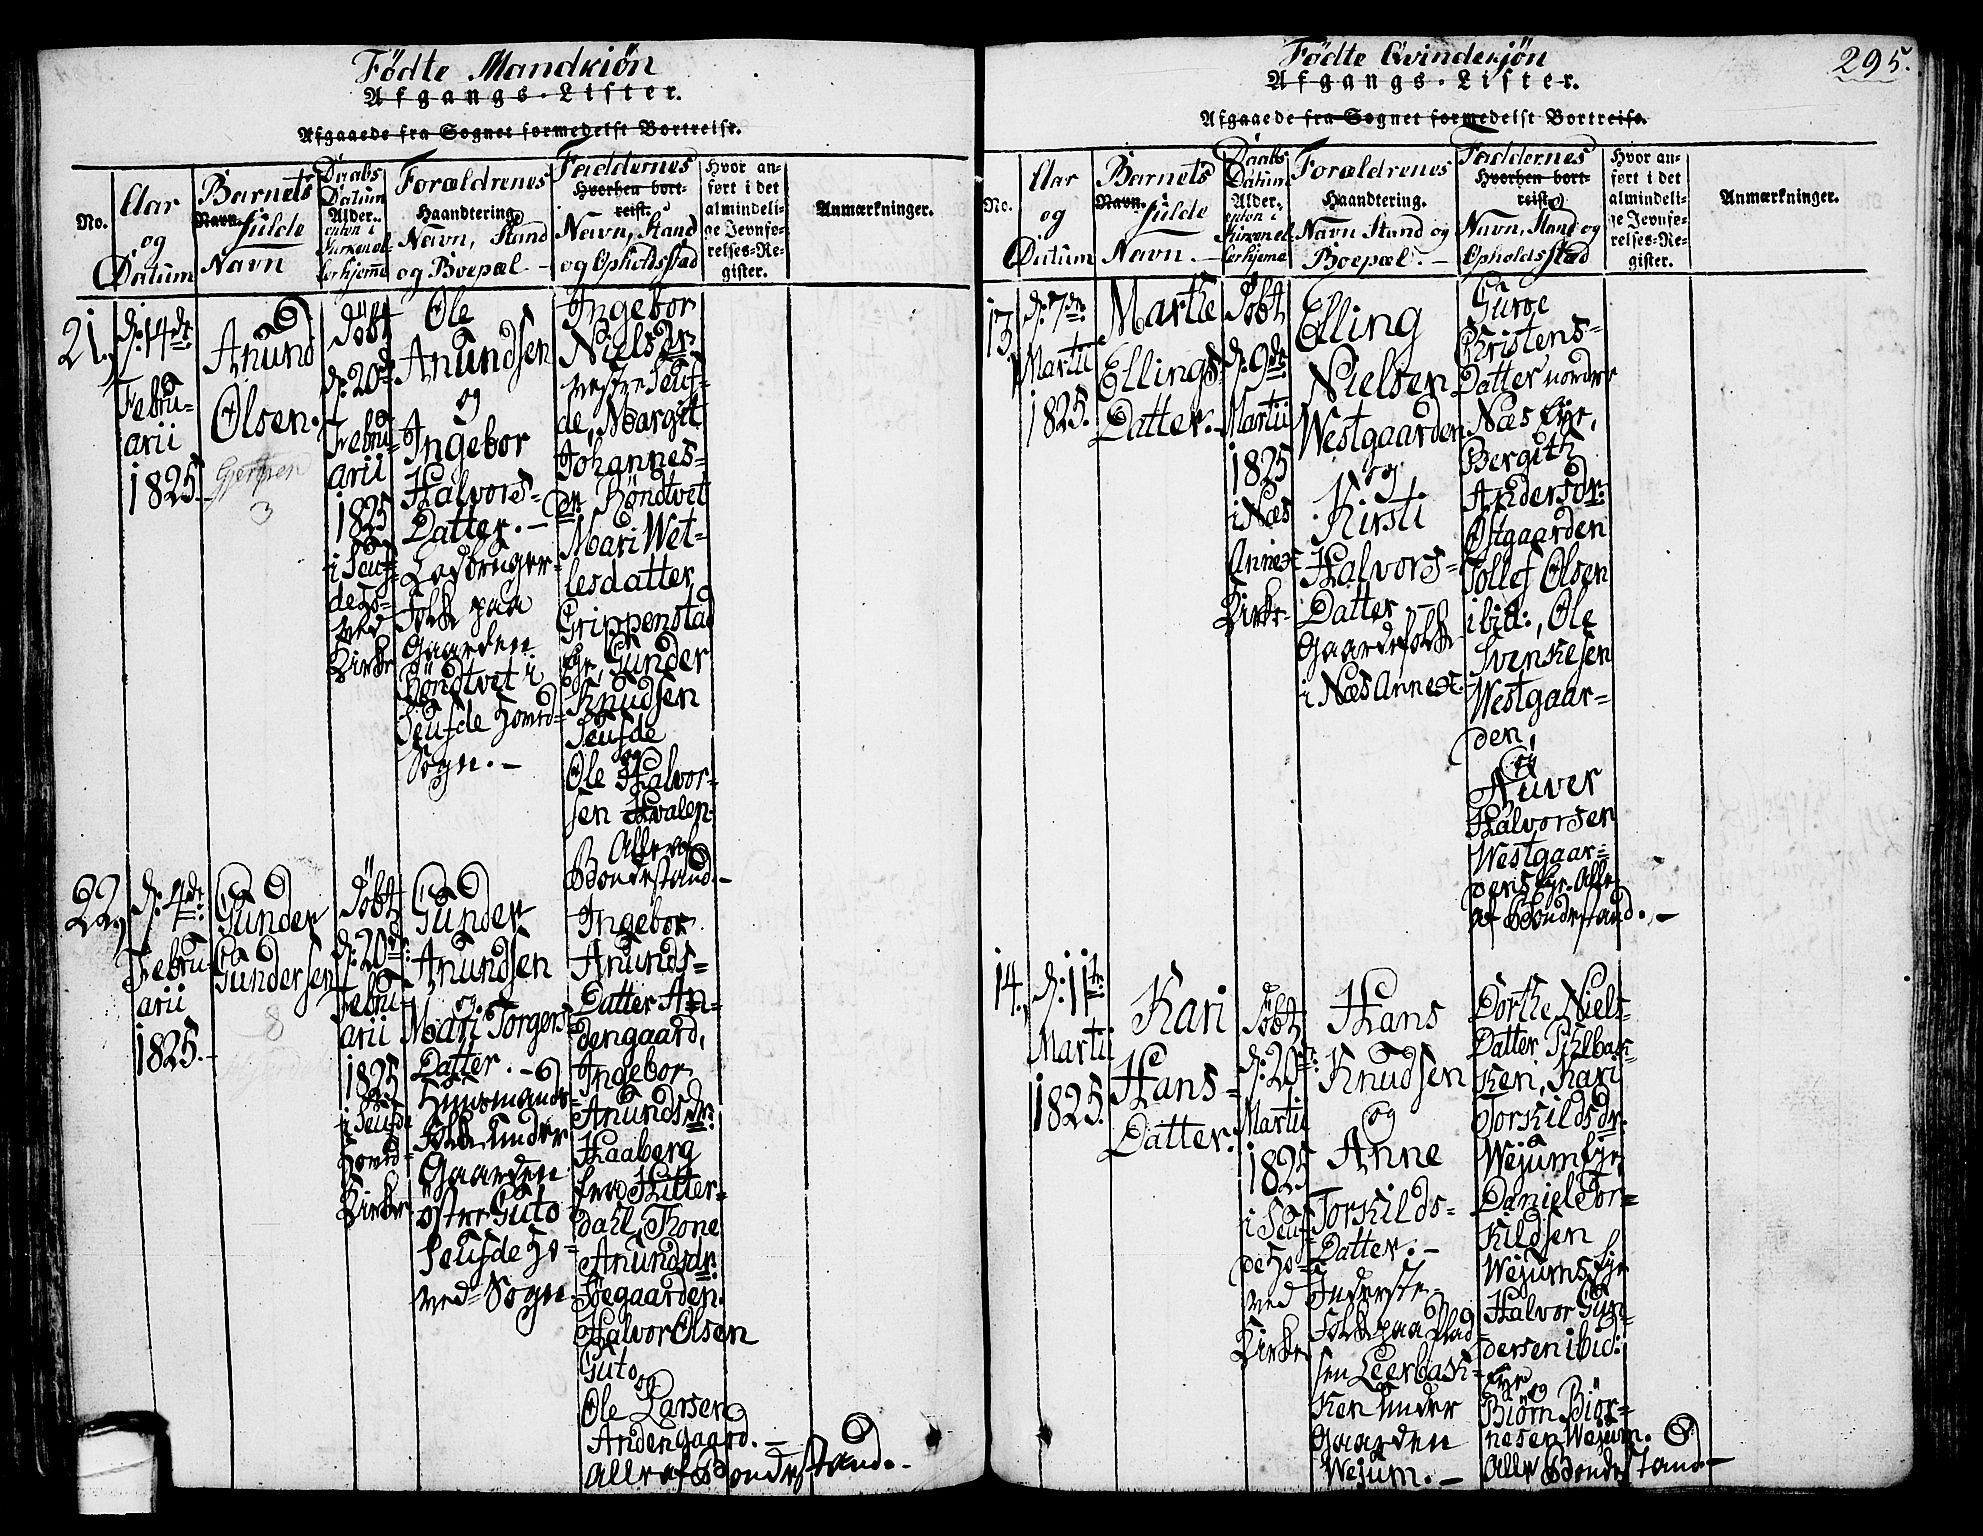 Fødte Mandkiön
Afgangs-Lister.
Afgaaede fra Sognet formedelst Bortreise.
No.
Aar
og
Datum
Barnets
Navn.
fulde
Navn
Daabs
Datum
Alder.
Forældrenes
Haandtering.
Navn, Stand
og Boepæl.-
Faddernes
Hvorhen bort-
reist.
Navn, Stand
og Opholdsstad
Hvor an-
ført i det
almindeli-
ge Jevnfø-
relses-Re-
gister.
Anmærkninger.
21.
d: 14de
Febru-
arii
1825.-
Anund
Olsen.
Gjerpen
3
Döbt
d: 20de
Febru-
arii
1825
i Seuf-
de Ho-
ved
Kirke
Ole
Anundsen
og
Ingebor
Halvors-
Datter.-
Folk paa
Gaarden
Röndtvet i
Seufde Hoved-
Sogn.-
Ingebor
Nielsdr.
vestre Seuf-
de, Margit
Johannes-
dr. Röndtvet
Mari Wet-
lesdatter
Grippenstad
Eje, Gunder
Knudsen
Seufde
og
Ole Halvor-
sen Hvalen.
Alle af
Bondestand.-
22,
d: 4de
Febru-
arii
1825.-
Gunder
Gundersen
8
Döbt
d: 20de
Febru-
arii
1825
i Seufde
Hoved-
Kirke
Gunder
Anundsen
og
Mari Torgers-
Datter.-
Huusmands-
Folk under
Gaarden
östre Guto
Seufde Ho-
ved-Sogn
Ingebor
Anunds-
Datter An-
dengaard,
Ingebor
Anundsdr:
Haaberg
fra Hitter-
dahl, Thone
Anundsdr:
Söegaarden.
Halvor Olsen
Guto
og
Ole Larsen
Andengaard.-
Alle af Bondestand.-
Fødte Qvindekjön
Afgangs-Lister.
Afgaaede fra Sognet formedelst Bortreise.
295.
No.
Aar
og
Datum
Barnets
Navn.
fulde
Navn.-
Daabs
Datum
Alder.
Forældrenes
Haandtering.
Navn Stand og
Boepæl.-
Faddernes
Hvorhen bort-
reist
Navn, Stand og
Opholdsstad
Hvor an-
ført i det
almindeli-
ge Jevnfø-
relses-Re-
gister.
Anmærkninger.
13,
d: 7de
Martii
1825.
Marthe
Ellings-
Datter.-
Döbt
d: 9de
Martii
1825
i Næs
Annex
Kirke-
Elling
Nielsen
Westgaarden
og
Kirsti
Halvors-
Datter.-
Gaardefolk
i Næs Annex.
Guroe
Christens-
Datter nordre
Næs Eje,
Bergith
Andersdr:
Østgaarden
Tollef Olsen
ibid:, Ole
Svenkesen
Westgaar-
den,
og
Auver
Halvorsen
Westgaar-
dens Eje. Alle
af Bondestand.-
14.
d: 11te
Martii
1825.
Kari
Hans-
Datter.
Döbt
d: 20de:
Martii
1825
i Seuf-
de Ho-
ved
Kirke
Hans
Knudsen
og
Anne
Torkilds-
Datter.-
Inderste-
Folk paa Plad-
sen Leerbak-
ken under
Gaarden
Wejum.-
Dorthe Niels-
Datter Pihlbak-
ken, Kari
Torkildsdr.
Wejum Eje,
Daniel Tor-
kildsen
Wejums Eje
Halvor Gun-
dersen ibid:
Eje
og
Biörn Biör-
nesen Wejum.
Alle Bondestand.-